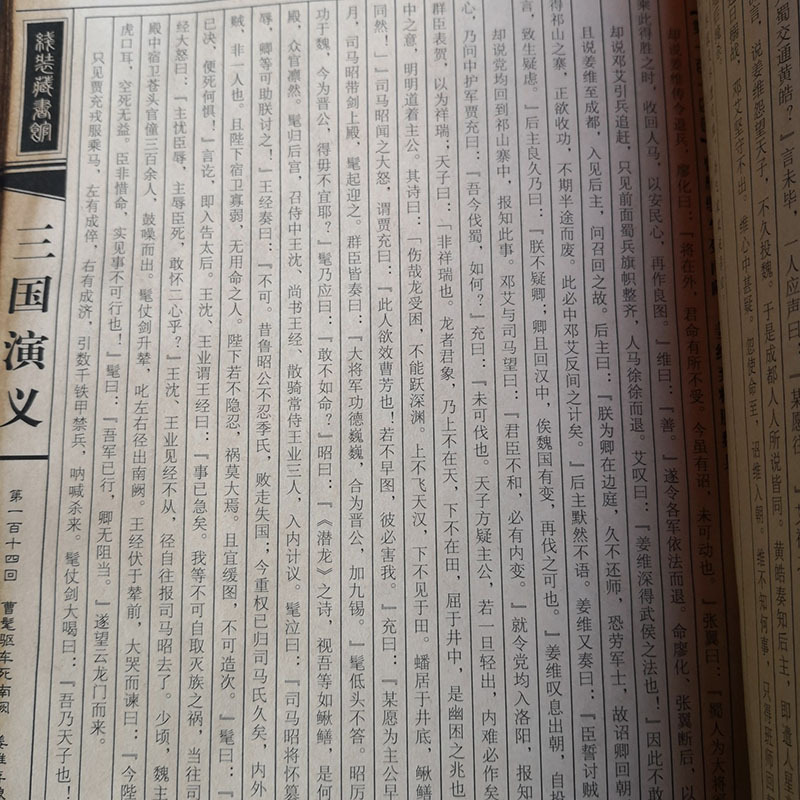 蜀交通黄皓？」言未毕，一人应声曰：「某愿往。」
言，说姜维怨望天子，不久投魏。于是成都人人所说皆同。黄皓奏知后主，即遣人星
出搦战，邓艾坚守不出，维心中甚疑。忽使命至，诏维入朝。维不知何事，只得班师
却说姜维传令退兵，廖化曰：「『将在外，君命有所不受。』今虽有诏，未可动也。」张翼曰：「蜀人为大将
乘此得胜之时，收回人马，以安民心，再作良图。」维曰：「善。」遂令各军依法而退。命廖化、张翼断后，以
却说邓艾引兵追赶，只见前面蜀兵旗帜整齐，人马徐徐而退。艾叹曰：「姜维深得武侯之法也！」因此不敢
且说姜维至成都，入见后主，问召回之故。后主曰：「朕为卿在边庭，久不还师，恐劳军士，故诏卿回朝
得祁山之寨，正欲收功，不期半途而废。此必中邓艾反间之计矣。」后主默然不语。姜维又奏曰：「臣誓讨贼
言，致生疑虑。」后主良久乃曰：「朕不疑卿；卿且回汉中，俟魏国有变，再伐之可也。」姜维叹息出朝，自投
却说党均回到祁山寨中，报知此事。邓艾与司马望曰：「君臣不和，必有内变。」就令党均入洛阳，报知
心，乃问中护军贾充曰：「吾今伐蜀，如何？」充曰：「未可伐也。天子方疑主公，若一旦轻出，内难必作矣
群臣表贺，以为祥瑞；天子曰：「非祥瑞也。龙者君象，乃上不在天，下不在田，屈于井中，是幽困之兆也
中之意，明明道着主公。其诗曰：「伤哉龙受困，不能跃深渊。上不飞天汉，下不见于田。蟠居于井底，鳅鳝
同然！」司马昭闻之大怒，谓贾充曰：「此人欲效曹芳也！若不早图，彼必害我。」充曰：「某愿为主公早
月，司马昭带剑上殿，髦起迎之。群臣皆奏曰：「大将军功德巍巍，合为晋公，加九锡。」髦低头不答。昭厉
功于魏，今为晋公，得毋不宜耶？」髦乃应曰：「敢不如命？」昭曰：「《潜龙》之诗，视吾等如鳅鳝，是何
殿，众官凛然。髦归后宫，召侍中王沈、尚书王经、散骑常侍王业三人，入内计议。髦泣曰：「司马昭将怀篡
辱，卿等可助朕讨之！」王经奏曰：「不可。昔鲁昭公不忍季氏，败走失国；今重权已归司马氏久矣，内外
贼，非一人也。且陛下宿卫寡弱，无用命之人。陛下若不隐忍，祸莫大焉。且宜缓图，不可造次。」髦曰：「
已决，便死何惧！」言讫，即入告太后。王沈、王业谓王经曰：「事已急矣。我等不可自取灭族之祸，当往司
经大怒曰：「主忧臣辱，主辱臣死，敢怀二心乎？」王沈、王业见经不从，径自往报司马昭去了。少顷，魏主
殿中宿卫苍头官僮三百余人，鼓噪而出。髦仗剑升辇，叱左右径出南阙。王经伏于辇前，大哭而谏曰：「今陛
虎口耳，空死无益。臣非惜命，实见事不可行也！」髦曰：「吾军已行，卿无阻当。」遂望云龙门而来。
只见贾充戎服乘马，左有成倅，右有成济，引数千铁甲禁兵，呐喊杀来。髦仗剑大喝曰：「吾乃天子也！
线装藏书馆
三国演义
第一百十四回 曹髦驱车死南阙 姜维弃